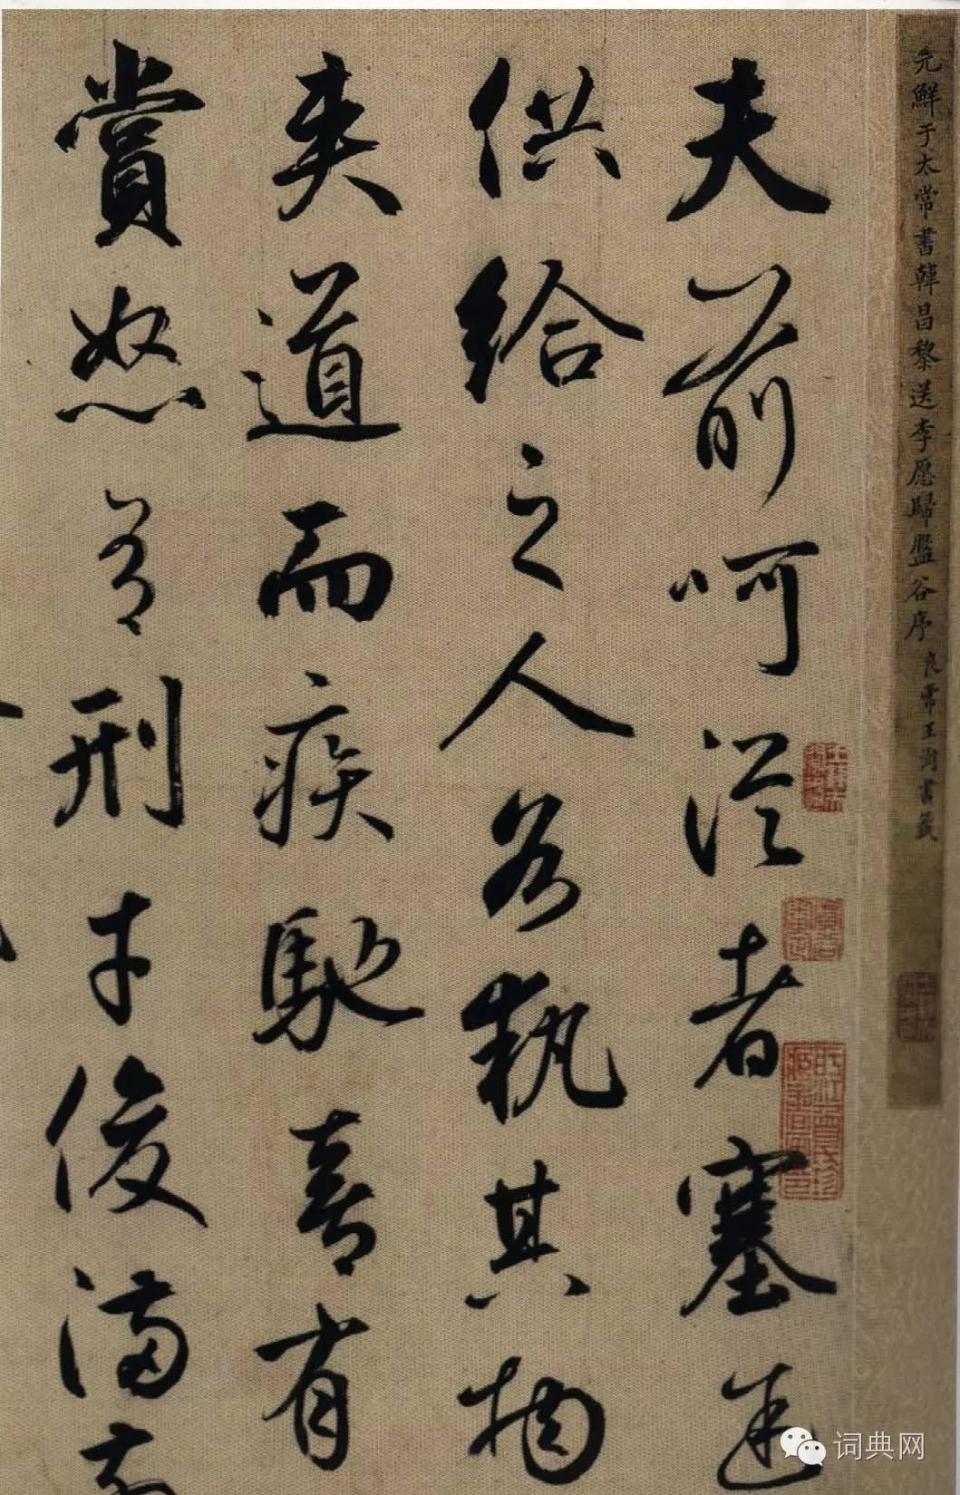 元鮮于太常書韓昌黎送李愿歸盤谷序 良常王澍書籤
夫前呵從者塞途
供給之人各執其物
夾道而疾馳喜有
賞怒有刑才俊滿
词典网